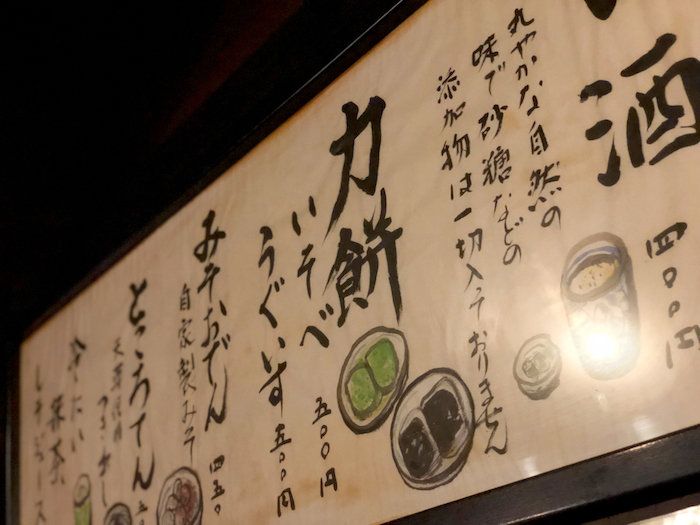 酒
四〇〇円
丸やかな自然の
味で砂糖などの
添加物は一切入っておりません
力餅
いそべ 五〇〇円
うぐいす 五〇〇円
みそおでん 四五〇
自家製みそ
ところてん 五
冷たい
抹茶